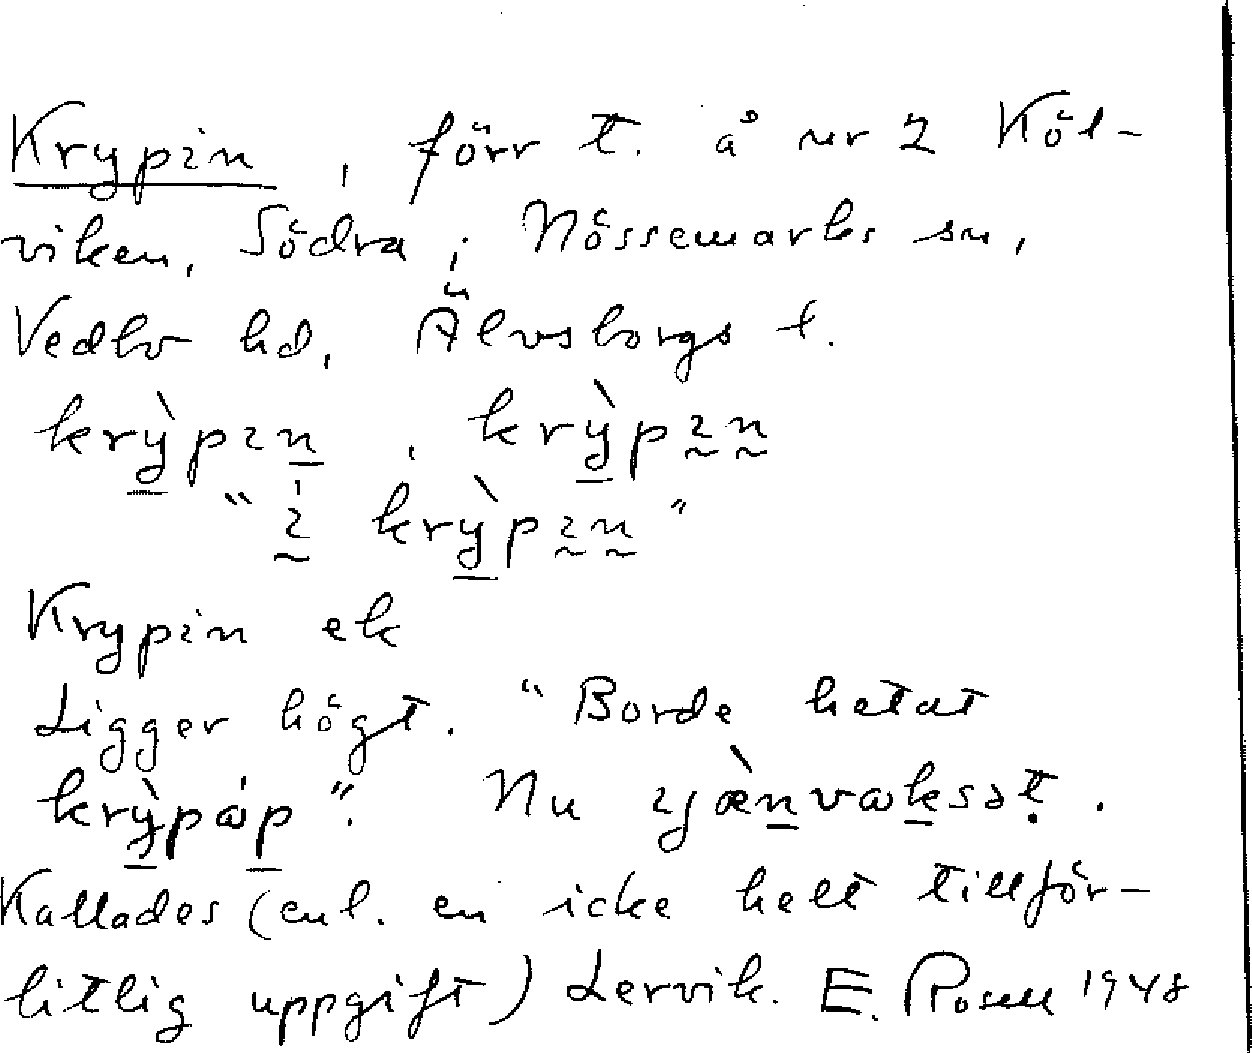 Krypin, förr t. å nr 2 Köl-
viken, Södra i Nössemarks sn,
Vedbo hd, Älvsborgs l.
krỳpın, krỳpın
"ı krỳpın"
Krypin ek
Ligger högt. "Borde hetat
krỳpáp". Nu
Kallades (enl. en icke helt tillför-
litlig uppgift) Lervik. E. Rosell 1948